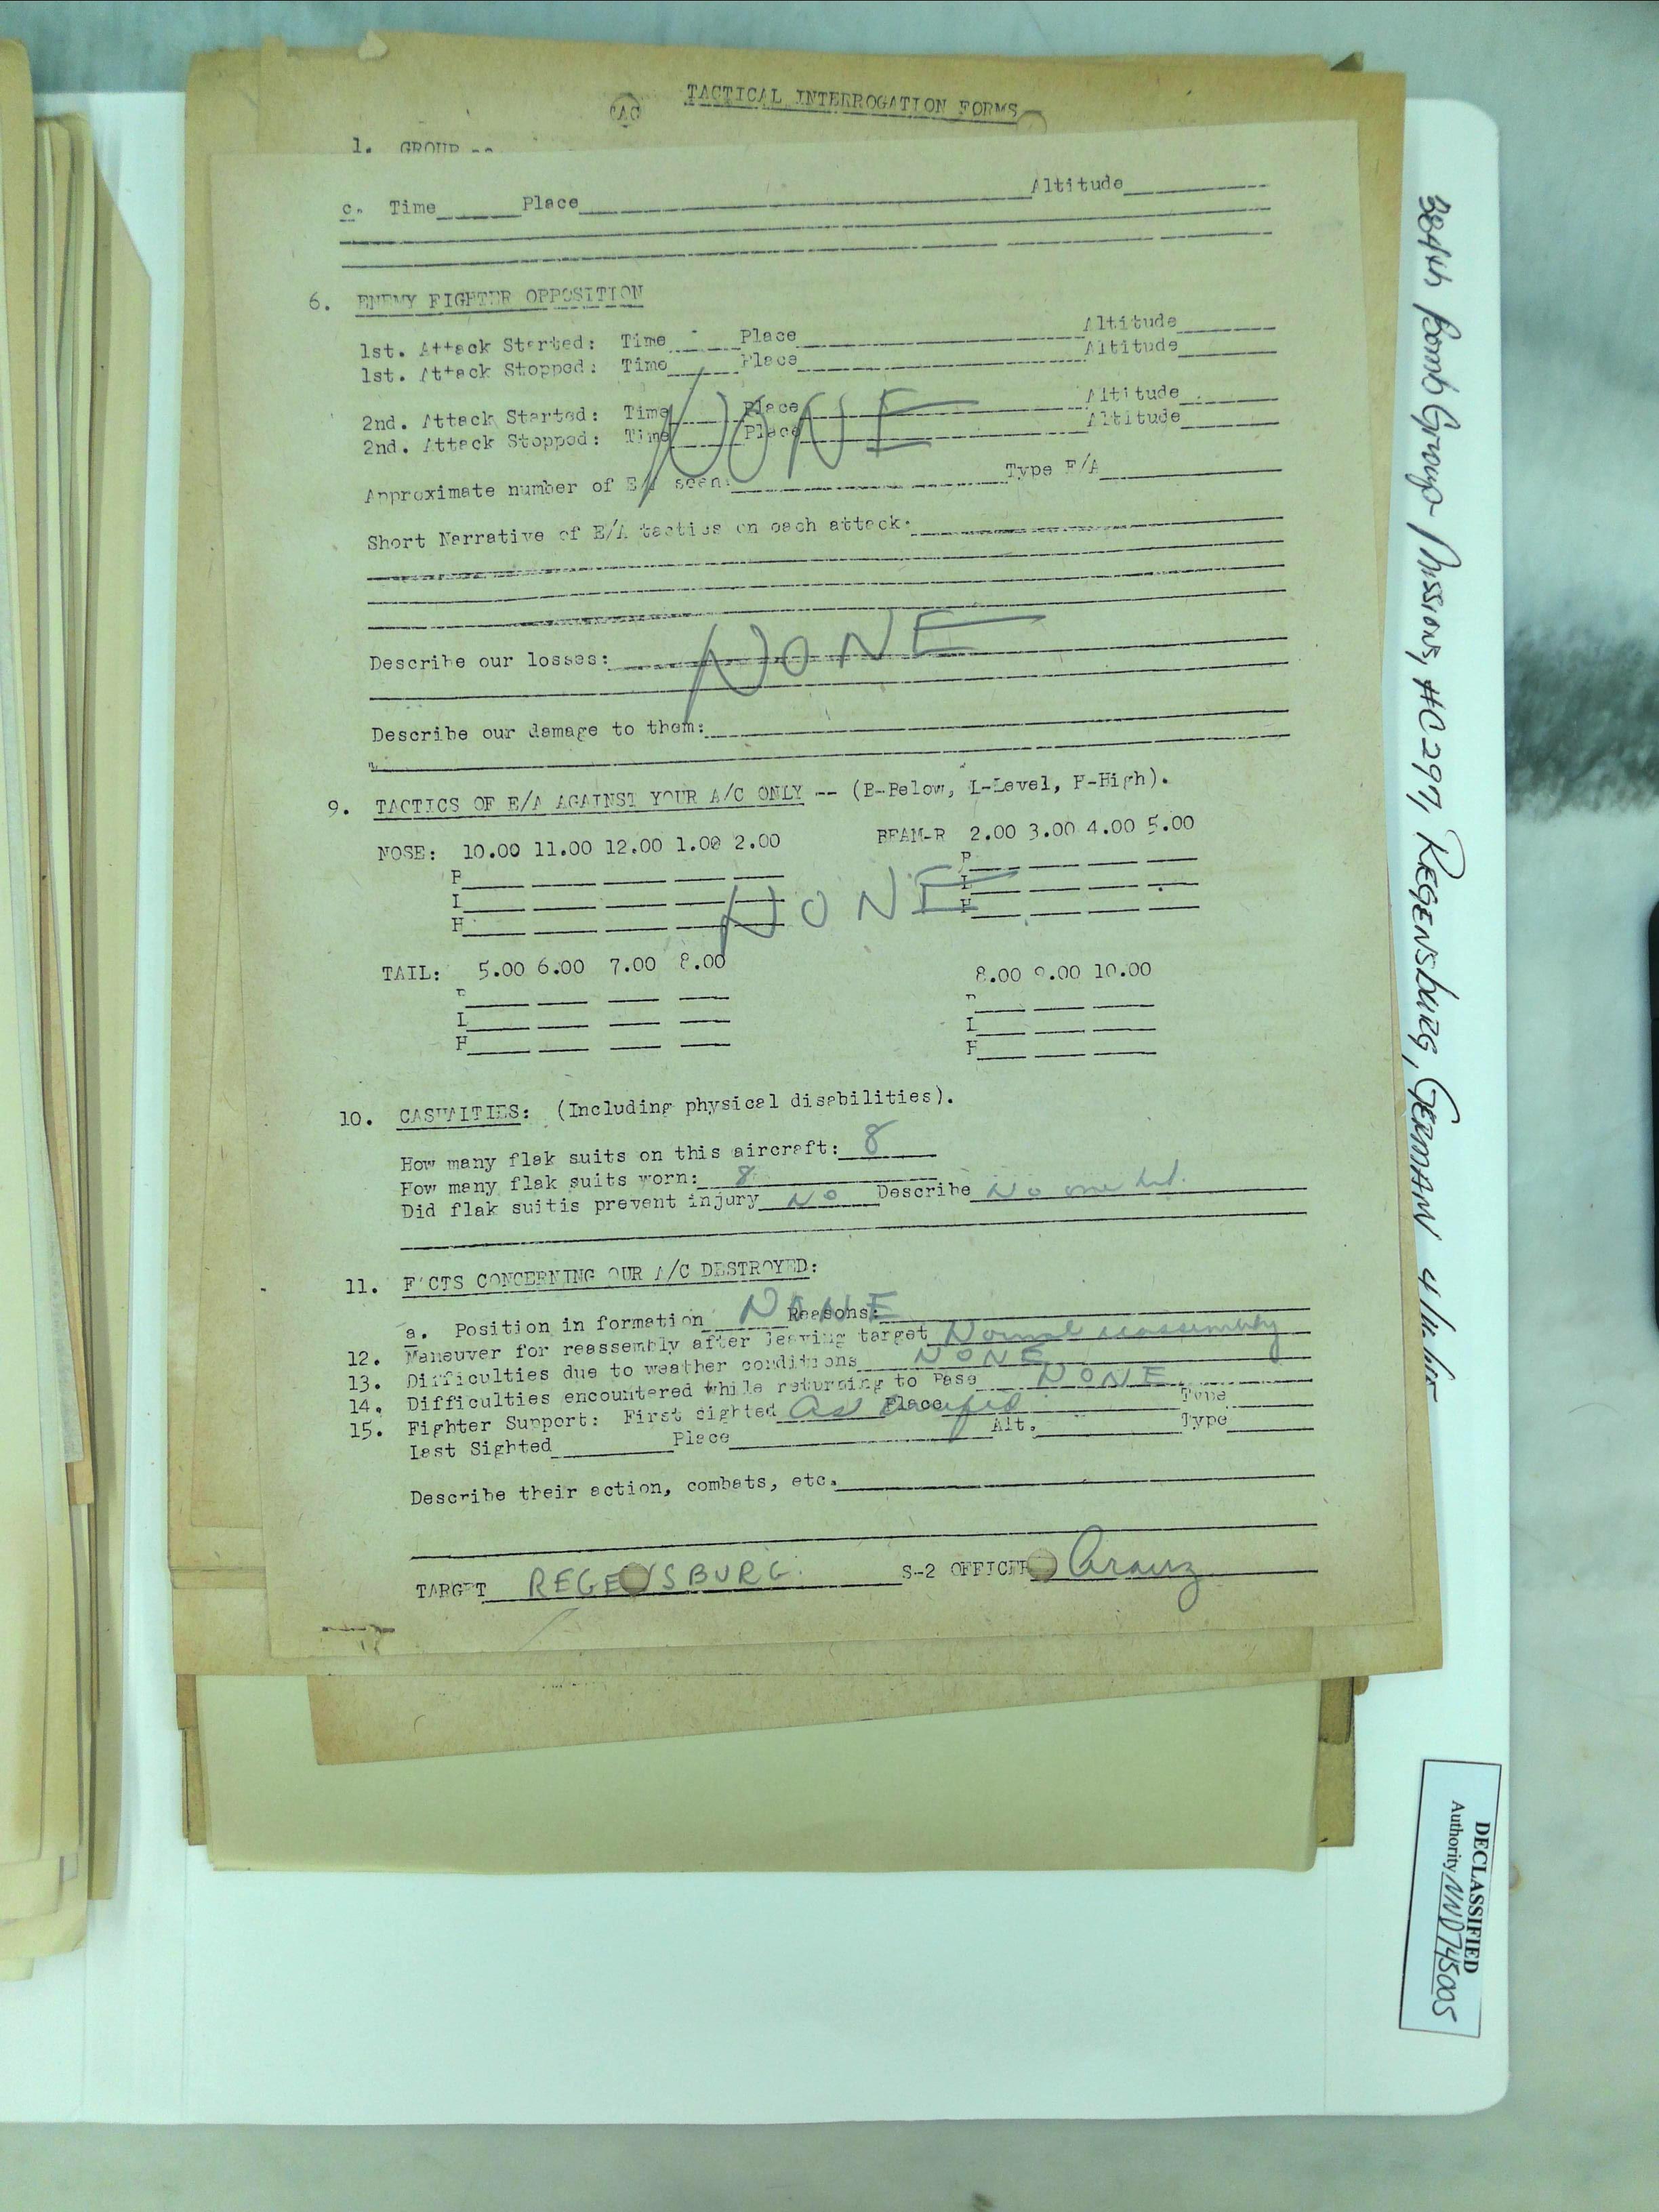 TACTICAL INTERROGATION FORMS
1. GROUP --
c. Time Place Altitude
6. ENEMY FIGHTER OPPOSITION
1st. Attack Started: Time Place Altitude
1st. Attack Stopped: Time Place Altitude
2nd. Attack Started: Time Place Altitude
2nd. Attack Stopped: Time Place Altitude
NONE
Approximate number of E/A seen: Type E/A
Short Narrative of E/A tactics on each attack:
Describe our losses: NONE
Describe our damage to them:
9. TACTICS OF E/A AGAINST YOUR A/C ONLY -- (B-Below, L-Level, H-High).
NOSE: 10.00 11.00 12.00 1.00 2.00 BEAM-R 2.00 3.00 4.00 5.00
B B
L L
H H
NONE
TAIL: 5.00 6.00 7.00 8.00 8.00 9.00 10.00
B B
L L
H H
10. CASUALTIES: (Including physical disabilities).
How many flak suits on this aircraft: 8
How many flak suits worn: 8
Did flak suitis prevent injury NO Describe No one hit.
11. FACTS CONCERNING OUR A/C DESTROYED:
a. Position in formation NONE Reasons:
12. Maneuver for reassembly after leaving target Normal reassembly
13. Difficulties due to weather conditions NONE
14. Difficulties encountered while returning to Base NONE
15. Fighter Support: First sighted As Place Type
Last Sighted Place Alt. Type
Describe their action, combats, etc.
TARGET REGENSBURG. S-2 OFFICER Arauz
384th Bomb Group Missions, #C 297, REGENSBURG, GERMAN
DECLASSIFIED
Authority NND745005